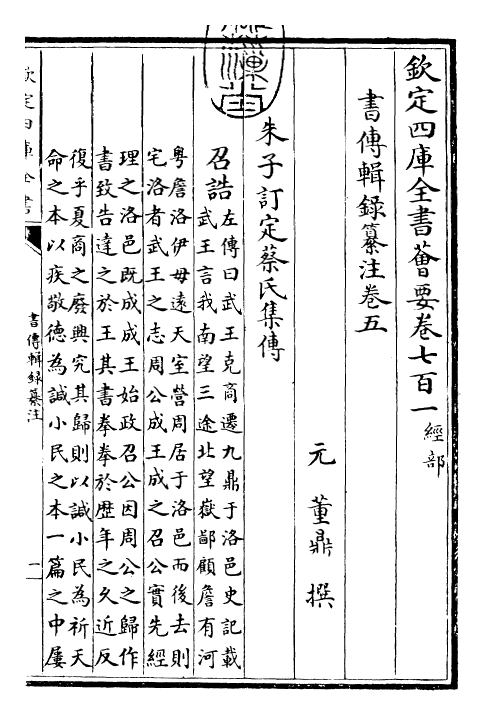 欽定四庫全書薈要卷七百一經部
書傳輯錄纂注卷五
元 董鼎 撰
朱子訂定蔡氏集傳
召誥左傳曰武王克商遷九鼎于洛邑史記載
武王言我南望三途北望嶽鄙顧詹有河
粵詹洛伊毋遠天室營周居于洛邑而後去則
宅洛者武王之志周公成王成之召公實先經
理之洛邑既成成王始政召公因周公之歸作
書致告達之於王其書拳拳於歴年之久近反
復乎夏商之廢興究其歸則以諴小民為祈天
命之本以疾敬德為諴小民之本一篇之中屢
欽定四庫全書
書傳輯錄纂注
一